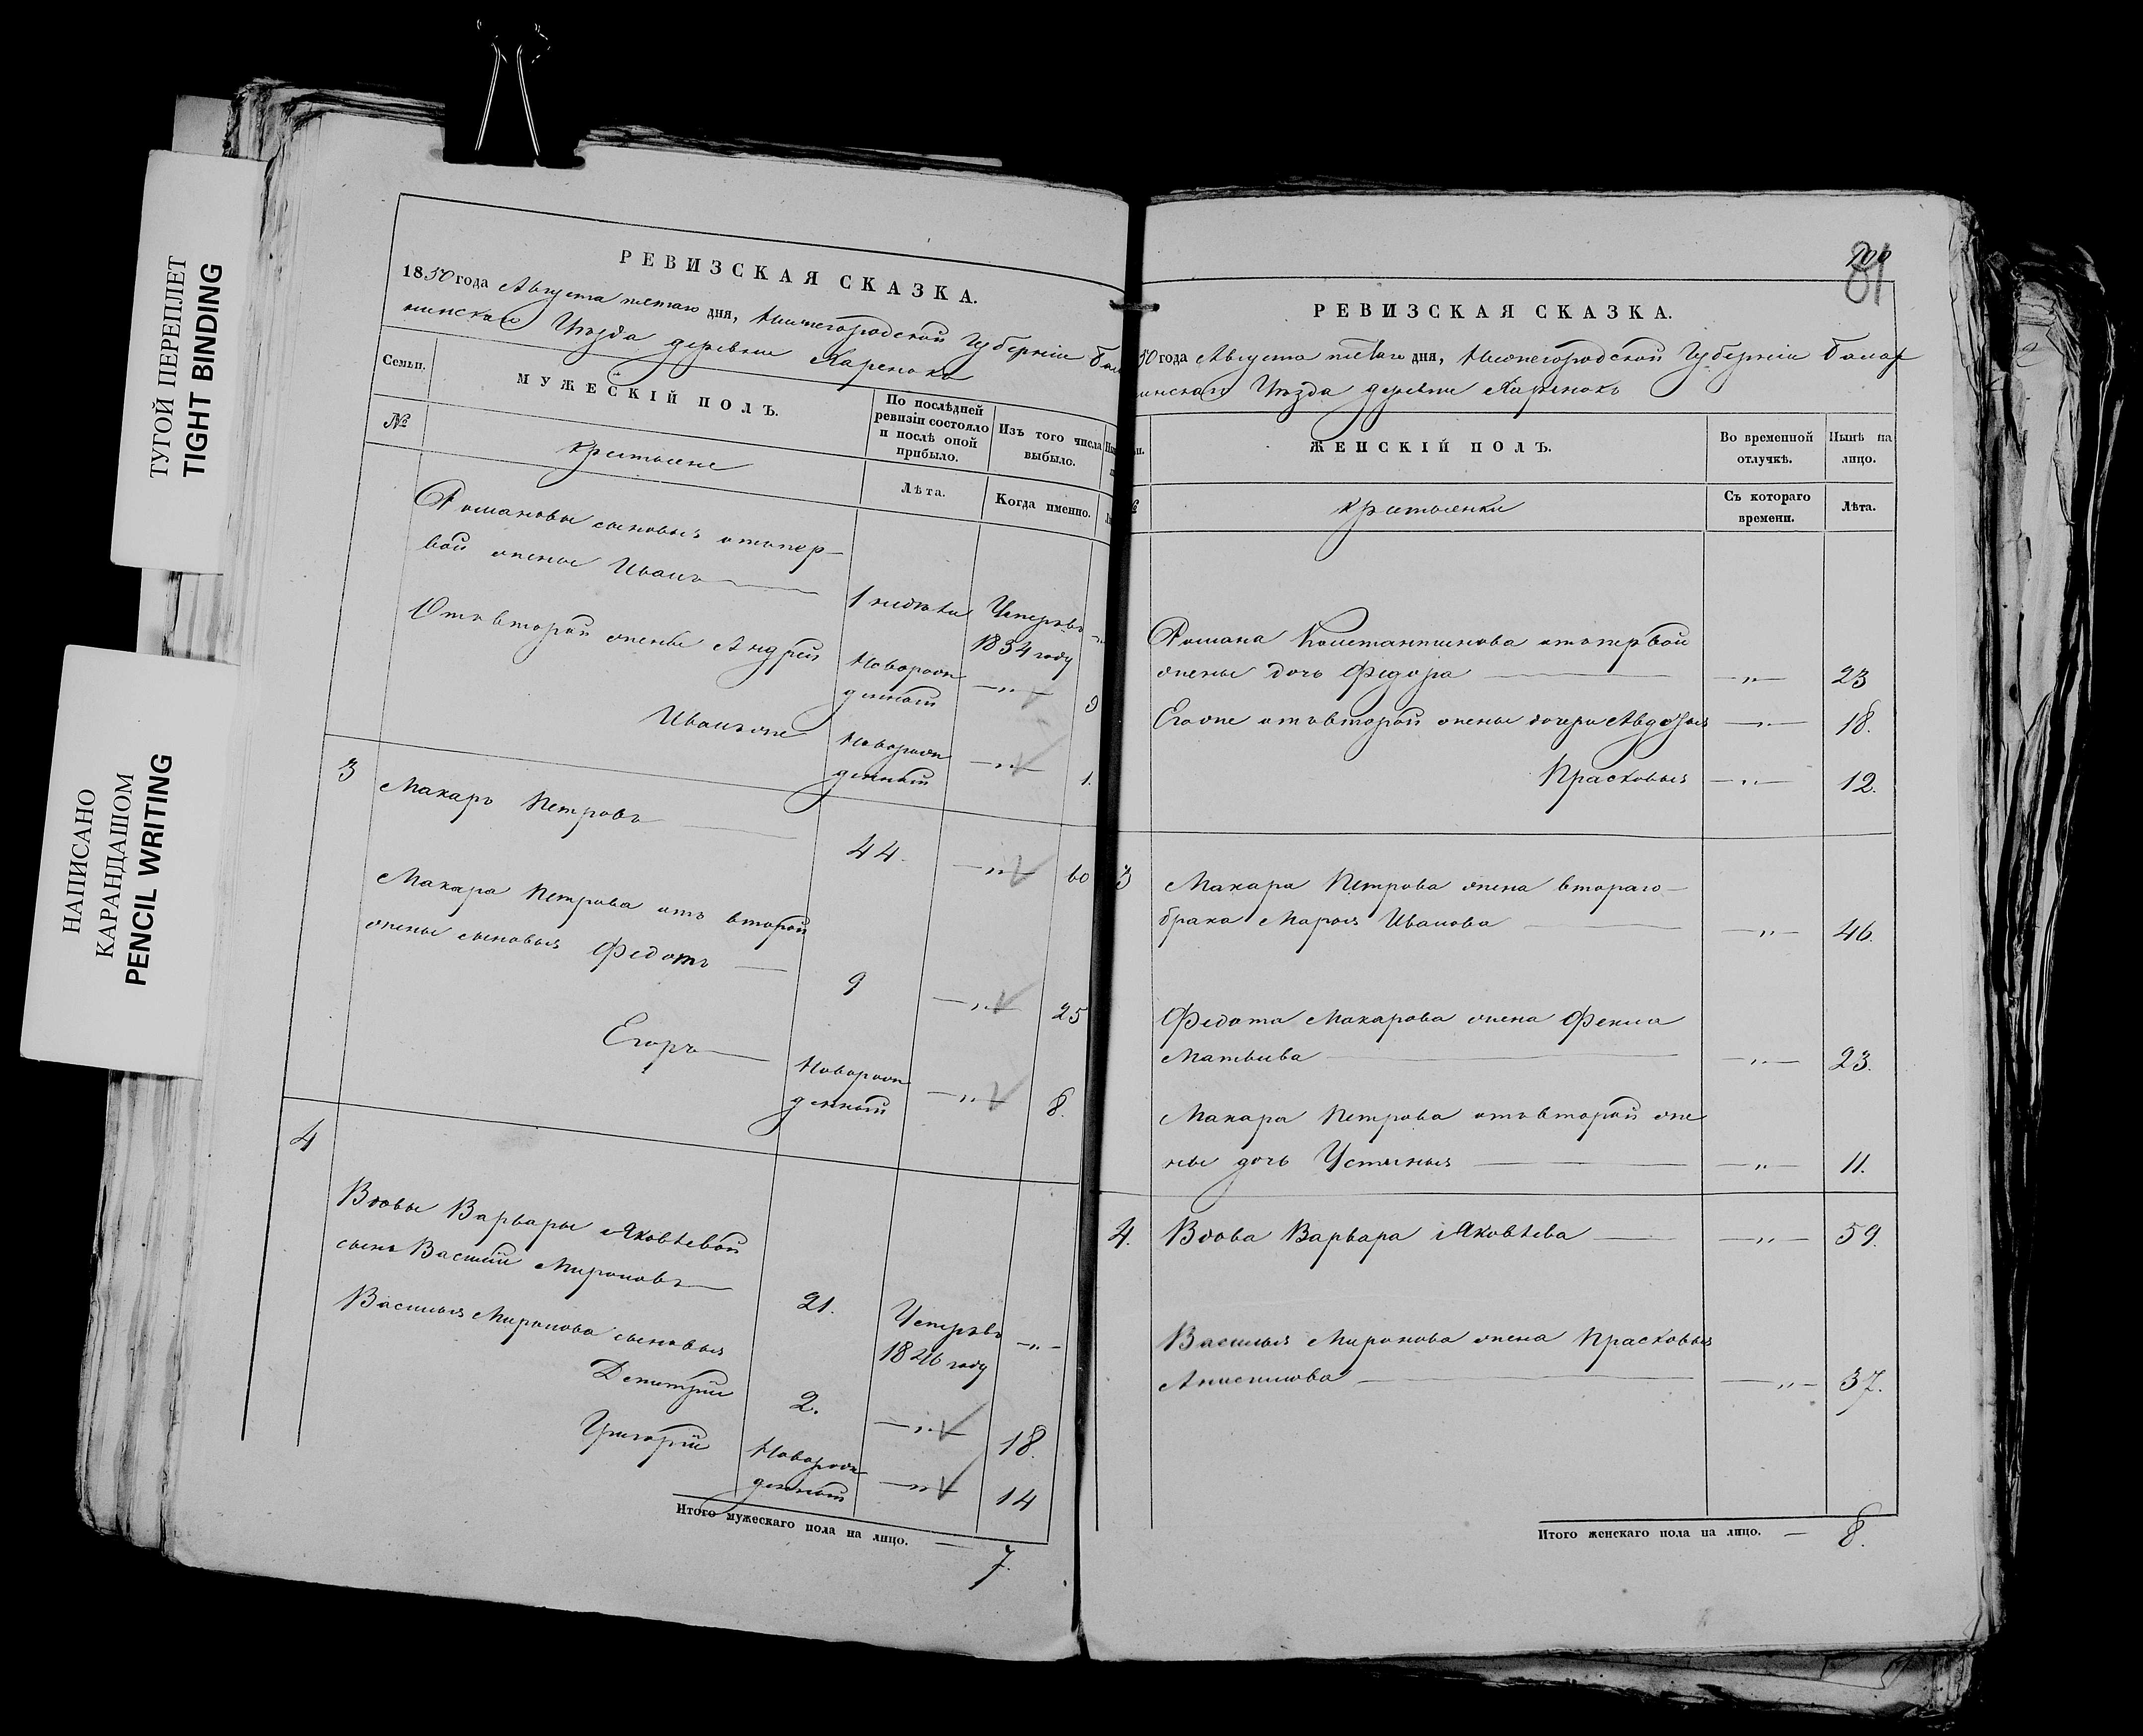 ТУГОЙ ПЕРЕПЛЕТ
TIGHT BINDING
НАПИСАНО
КАРАНДАШОМ
PENCIL WRITING
РЕВИЗСКАЯ СКАЗКА.
1850 года Августа пятаго дня, Нижегородской Губерніи Бала
нинскаго Уѣзда деревни Каренокъ
Семьи.
МУЖЕСКІЙ ПОЛЪ.
По послѣдней
ревизіи состояло
и послѣ оной
прибыло.
Изъ того числа
выбыло.
№
крестьяне
Лѣта.
Когда именно.
Романовы сыновья отъ пер-
вой жены Иванъ
1 недели
Умеръ въ
1834 году
—„—
Отъ второй жены Андрей
Новорож
денный
—„—
9
Иванъ же
Новорож
денный
—„—
1.
3
Макаръ Петровъ
44.
—„—
60
Макара Петрова отъ второй
жены сыновья Федотъ
9
—„—
25
Егоръ
Новорож
денный
—„—
8.
4
Вдовы Варвары Яковлевой
сынъ Василій Мироновъ
21.
Умеръ въ
1846 году
—„—
Василья Миронова сыновья
Дмитрій
2.
—„—
18.
Григорій
Новорож
денный
—„—
14
Итого мужескаго пола на лицо. — 7.
81
РЕВИЗСКАЯ СКАЗКА.
50 года Августа пятаго дня, Нижегородской Губерніи Балах
нинскаго Уѣзда деревни Каренокъ
ЖЕНСКІЙ ПОЛЪ.
Во временной
отлучкѣ.
Нынѣ на
лицо.
крестьянки
Съ котораго
времени.
Лѣта.
Романа Констант­инова отъ первой
жены дочь Федора —„— 23
Егоже отъ второй жены дочери Авдотья —„— 18.
Прасковья —„— 12.
3
Макара Петрова жена втораго
брака Марья Иванова —„— 46.
Федота Макарова жена Фекла
Матвеева —„— 23.
Макара Петрова отъ второй же
ны дочь Устинья —„— 11.
4. Вдова Варвара Яковлева —„— 59.
Василья Миронова жена Прасковья
Анисимова —„— 37.
Итого женскаго пола на лицо. — 8.